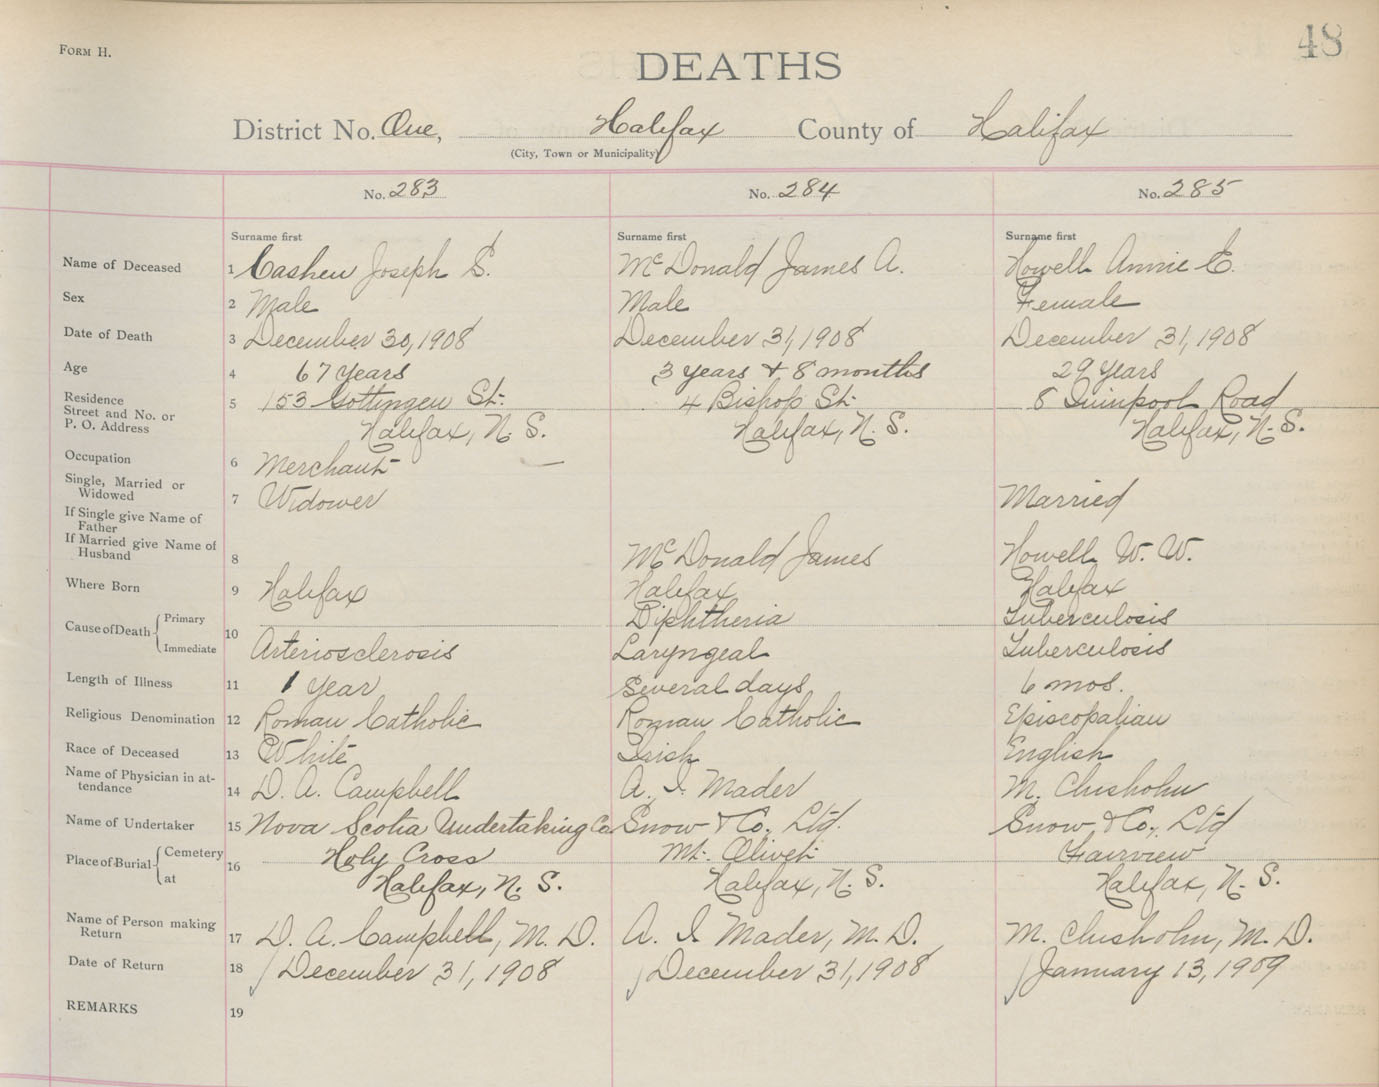 FORM H.
48
DEATHS
District No. One, Halifax County of Halifax
(City, Town or Municipality)
No. 283 No. 284 No. 285
Surname first Surname first Surname first
Name of Deceased 1 Cashen Joseph S. McDonald James A. Howell Annie E.
Sex 2 Male Male Female
Date of Death 3 December 30, 1908 December 31, 1908 December 31, 1908
Age 4 67 years 3 years + 8 months 29 years
Residence
Street and No. or 5 153 Gottingen St. 4 Bishop St. 8 Quinpool Road
P. O. Address Halifax, N. S. Halifax, N. S. Halifax, N. S.
Occupation 6 Merchant —
Single, Married or
Widowed 7 Widower Married
If Single give Name of
Father
If Married give Name of
Husband 8 McDonald James Howell W. W.
Where Born 9 Halifax Halifax Halifax
Cause of Death Primary 10 Diphtheria Tuberculosis
Immediate Arteriosclerosis Laryngeal Tuberculosis
Length of Illness 11 1 year Several days 6 mos.
Religious Denomination 12 Roman Catholic Roman Catholic Episcopalian
Race of Deceased 13 White Irish English
Name of Physician in at-
tendance 14 D. A. Campbell A. I. Mader M. Chisholm
Name of Undertaker 15 Nova Scotia Undertaking Co Snow & Co., Ltd. Snow & Co., Ltd
Place of Burial Cemetery 16 Holy Cross Mt. Olivet Fairview
at Halifax, N. S. Halifax, N. S. Halifax, N. S.
Name of Person making
Return 17 D. A. Campbell, M. D. A. I. Mader, M. D. M. Chisholm, M. D.
Date of Return 18 December 31, 1908 December 31, 1908 January 13, 1909
REMARKS 19